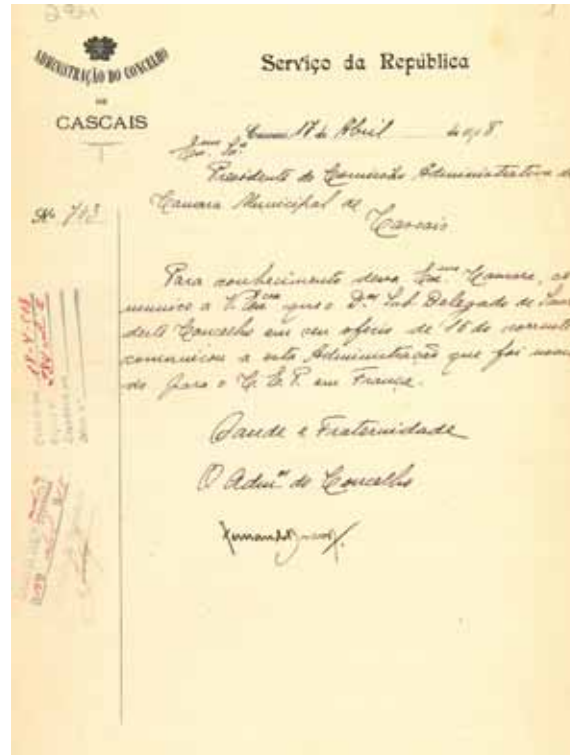 1
ADMINISTRAÇÃO DO CONCELHO
DE
CASCAIS
Serviço da República
17 de Abril de 1918
Exmo Snr
Presidente da Comissão Administrativa da
Camara Municipal de
Cascais
Nº 713
Para conhecimento dessa Exma Camara, co
munico a V. Excia que o Dor Sub Delegado de Sau
deste Concelho em seu oficio de 15 do corrente
comunicou a esta Administração que foi nomea
do para o C. E. P. em França.
Saude e Fraternidade
O Admor do Concelho